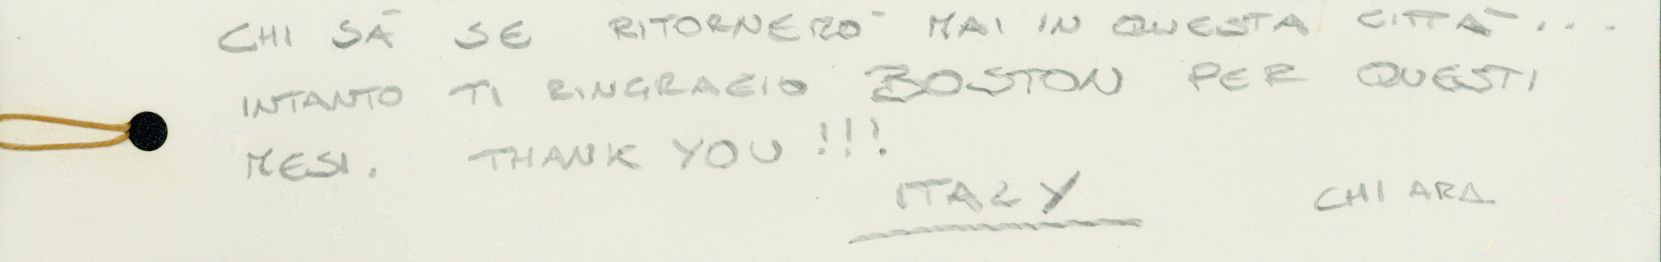 CHI SÀ SE RITORNERÒ MAI IN QUESTA CITTÀ...
INTANTO TI RINGRAZIO BOSTON PER QUESTI
MESI. THANK YOU!!!
ITALY CHIARA